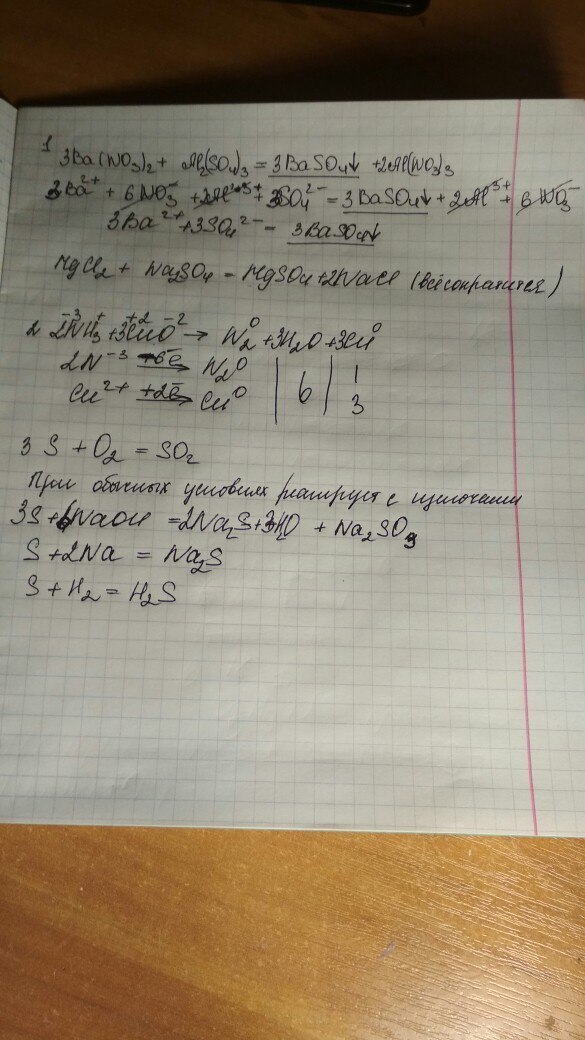 1
3Ba(NO₃)₂ + Al₂(SO₄)₃ = 3BaSO₄↓ + 2Al(NO₃)₃
3Ba²⁺ + 6NO₃⁻ + 2Al³⁺ + 3SO₄²⁻ = 3BaSO₄↓ + 2Al³⁺ + 6NO₃⁻
3Ba²⁺ + 3SO₄²⁻ = 3BaSO₄↓
MgCl₂ + Na₂SO₄ = MgSO₄ + 2NaCl (всё сократится)
2 2N⁻³H₃⁺ + 3Cu⁺²O⁻² → N₂⁰ + 3H₂O + 3Cu⁰
2N⁻³ –6e̅→ N₂⁰ | 6 | 1
Cu²⁺ +2e̅→ Cu⁰ | | 3
3 S + O₂ = SO₂
При обычных условиях реагирует с щелочами
3S + 6NaOH = 2Na₂S + 3H₂O + Na₂SO₃
S + 2Na = Na₂S
S + H₂ = H₂S